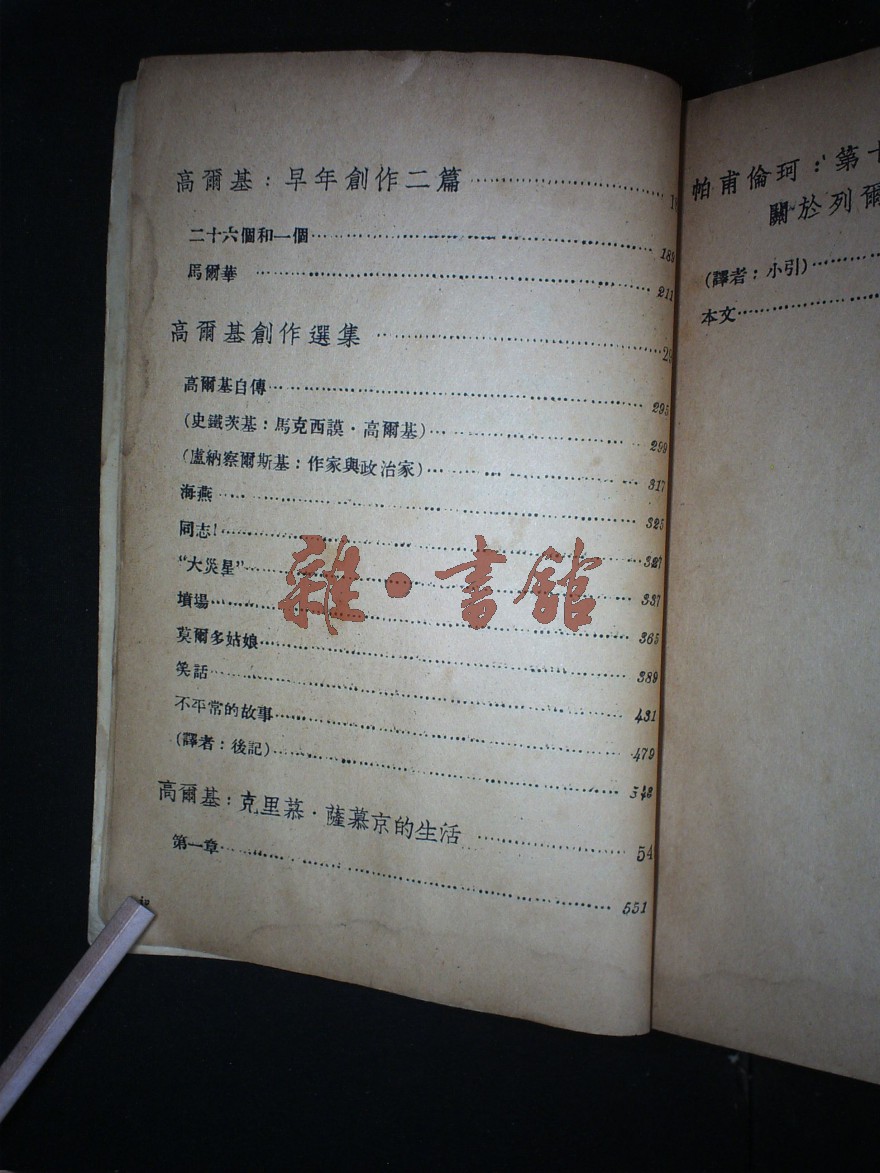 高爾基：早年創作二篇
二十六個和一個 189
馬爾華 211
高爾基創作選集
高爾基自傳 295
(史鐵茨基：馬克西謨·高爾基) 299
(盧納察爾斯基：作家與政治家) 317
海燕 325
同志! 327
“大災星” 337
墳場 365
莫爾多姑娘 389
笑話 431
不平常的故事 479
(譯者：後記)
高爾基：克里慕·薩慕京的生活 54
第一章 551
iv
帕甫倫珂：第十
關於列爾
(譯者：小引)
本文
雜·書館